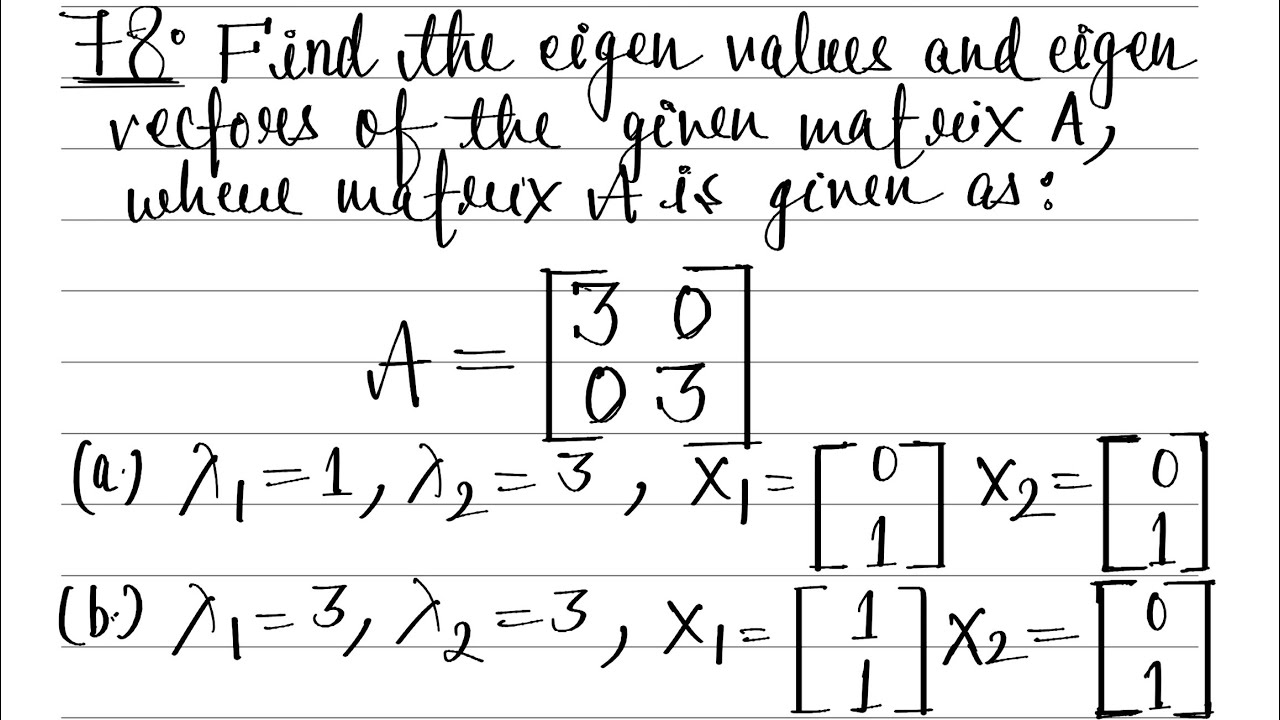 78. Find the eigen values and eigen
vectors of the given matrix A,
where matrix A is given as:
A = [3 0
0 3]
(a.) λ₁ = 1, λ₂ = 3, X₁ = [0 1] X₂ = [0 1]
(b.) λ₁ = 3, λ₂ = 3, X₁ = [1 1] X₂ = [0 1]